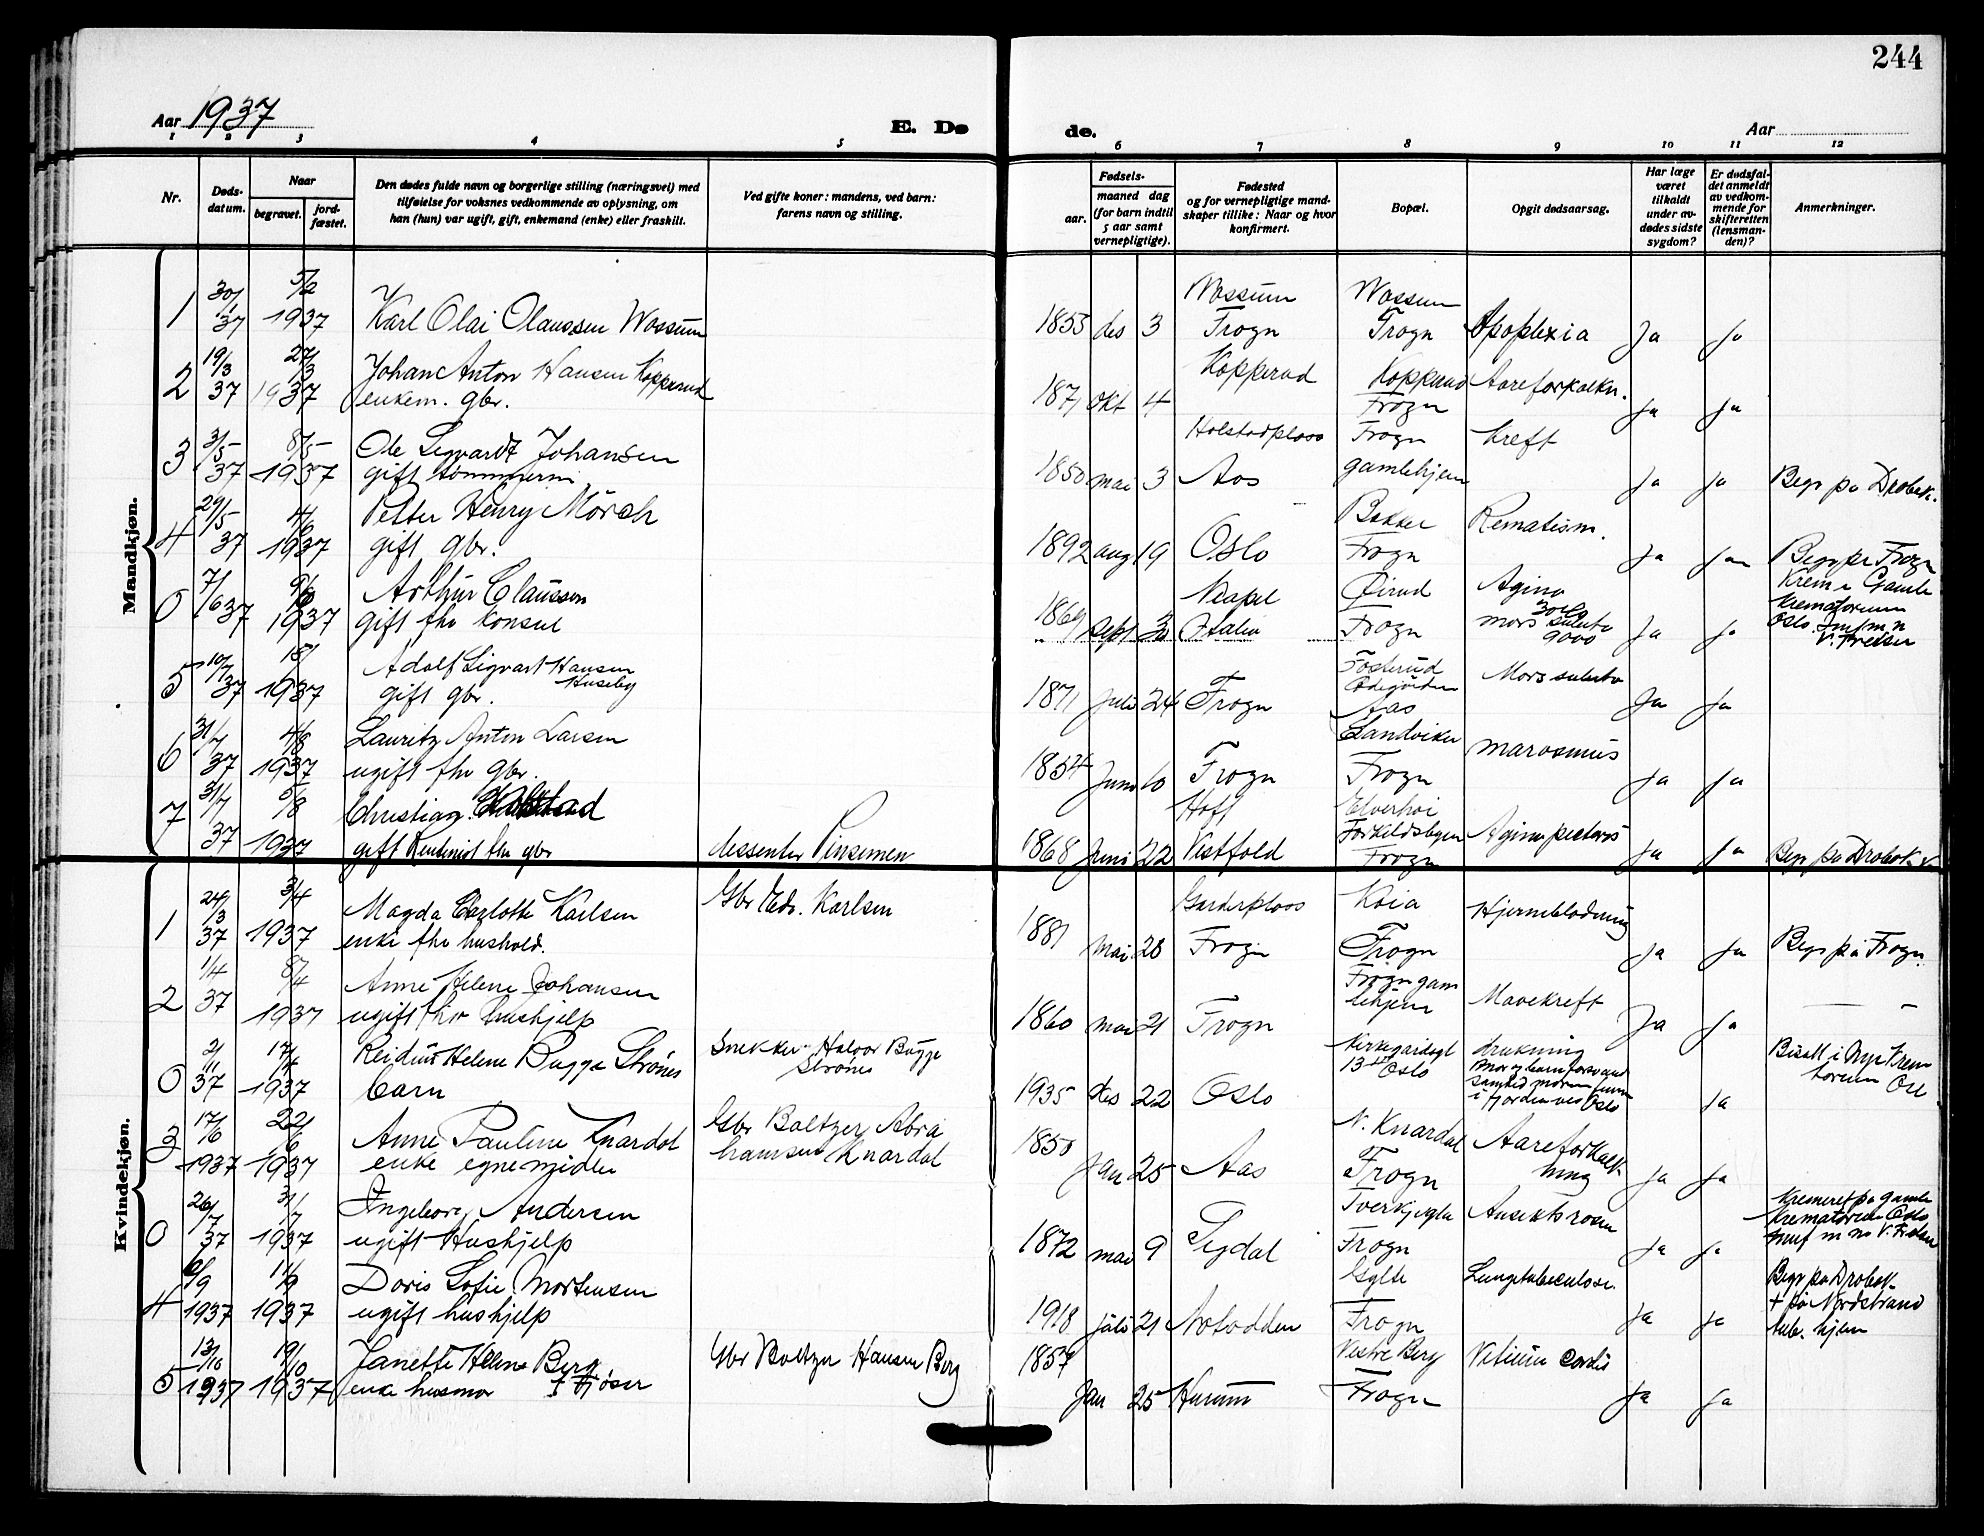 244
Aar 1937
E. Dø
de.
Aar
1 2 3 4 5 6 7 8 9 10 11 12
Nr.
Døds-
datum.
Naar
begravet.
jord-
fæstet.
Den dødes fulde navn og borgerlige stilling (næringsvei) med
tilføielse for voksnes vedkommende av oplysning, om
han (hun) var ugift, gift, enkemand (enke) eller fraskilt.
Ved gifte koner: mandens, ved barn:
farens navn og stilling.
Fødsels-
aar.
maaned dag
(for barn indtil
5 aar samt
vernepligtige).
Fødested
og for vernepligtige mand-
skaper tillike: Naar og hvor
konfirmert.
Bopæl.
Opgit dødsaarsag.
Har læge
været
tilkaldt
under av-
dødes sidste
sygdom?
Er dødsfal-
det anmeldt
av vedkom-
mende for
skifteretten
(lensman-
den)?
Anmerkninger.
Mandkjøn.
1 30/1 37 5/2 1937 Karl Olai Olaussen Wossum 1853 des 3 Wossum Frogn Wossum Frogn Apoplexia Ja Ja
2 19/3 37 27/3 1937 Johan Anton Hansen Kopperud
enkem. gbr. 1871 okt 4 Kopperud Kopperud Frogn Aareforkalkn. Ja Ja
3 3/5 37 8/5 1937 Ole Sigvardt Johansen
gift tømmerm 1850 mai 3 Holstadplass Aas Frogn gamlehjem kreft Ja Ja Begr på Drøbak.
4 29/5 37 4/6 1937 Petter Henry Mörch
gift gbr. 1892 aug 19 Oslo Bakker Frogn Rematism. Ja Jan Begr på Frogn
0 7/6 37 9/6 1937 Arthur Claussen
gift fhv konsul 1869 sept 30 Neapel Italia Øirud Frogn Agina mors subito Ja Ja Krem i Gamle
Krematorium
Oslo
5 10/7 37 1937 Adolf Sigvart Hansen
Huseby
gift gbr. 1871 Juli 24 Frogn Fosterud Ødegården Aas Mors subito Ja Ja
6 31/7 37 4/8 1937 Lauritz Anton Larsen
ugift fhv gbr. 1854 Juni 10 Frogn Sandviken Frogn marasmus Ja Ja
7 31/7 37 5/8 1937 Christian
gift Rentenist fhv gbr dissenter Pinsemen 1868 Juni 22 Hoff Vestfold Elverhøi Torkildsbyen Frogn Agina pectoris Ja Ja Begr på Drøbak
Kvindekjøn.
1 24/3 37 3/4 1937 Magda Carlotte Karlsen
enke fhv hushold. Gbr Edv. Karlsen 1881 mai 28 Garderplass Frogn Kaia Frogn Hjerneblødning Ja Ja Begr på Frogn.
2 1/4 37 8/4 1937 Anne Helene Johansen
ugift fhv hushjelp 1860 mai 21 Frogn Frogn gam
lehjem Mavekreft Ja Ja
0 2/1 37 17/4 1937 Reidun Helene Bugge Strønes
barn Snekker Halvor Bugge
Strønes 1935 des 22 Oslo Kirkegårdsgt
13 Oslo drukning
Mor og barn forsvandt
samtid moren funn
i fjorden ved Oslo Ja Bisatt i Nye Krema
torium Osl
3 17/6 1937 22/6 1937 Anne Pauline Knardal
enke egne midler Gbr Baltzer Abra
hamsen Knardal 1850 Jan 25 Aas N. Knardal Frogn Aareforkalk
ning Ja Ja
0 26/7 37 31/7 1937 Ingeborg Andersen
ugift Hushjelp 1872 mai 9 Sigdal Frogn Ansiktsrosen Ja Ja Kremert på gamle
Krematorium Oslo
4 6/9 1937 11/9 1937 Doris Sofie Mortensen
ugift hushjelp 1918 juli 21 Notodden Gylte Frogn Lungetuberculose. Ja Ja Begr på Drøbak
+ på Nordstrand
tub. hjem
5 13/10 1937 19/10 1937 Janette Helene Berg
enke husmor f Tjøser Gbr Baltzer Hansen Berg 1857 Jan 25 Hurum Vestre Berg Frogn Vitium Cordis Ja Ja